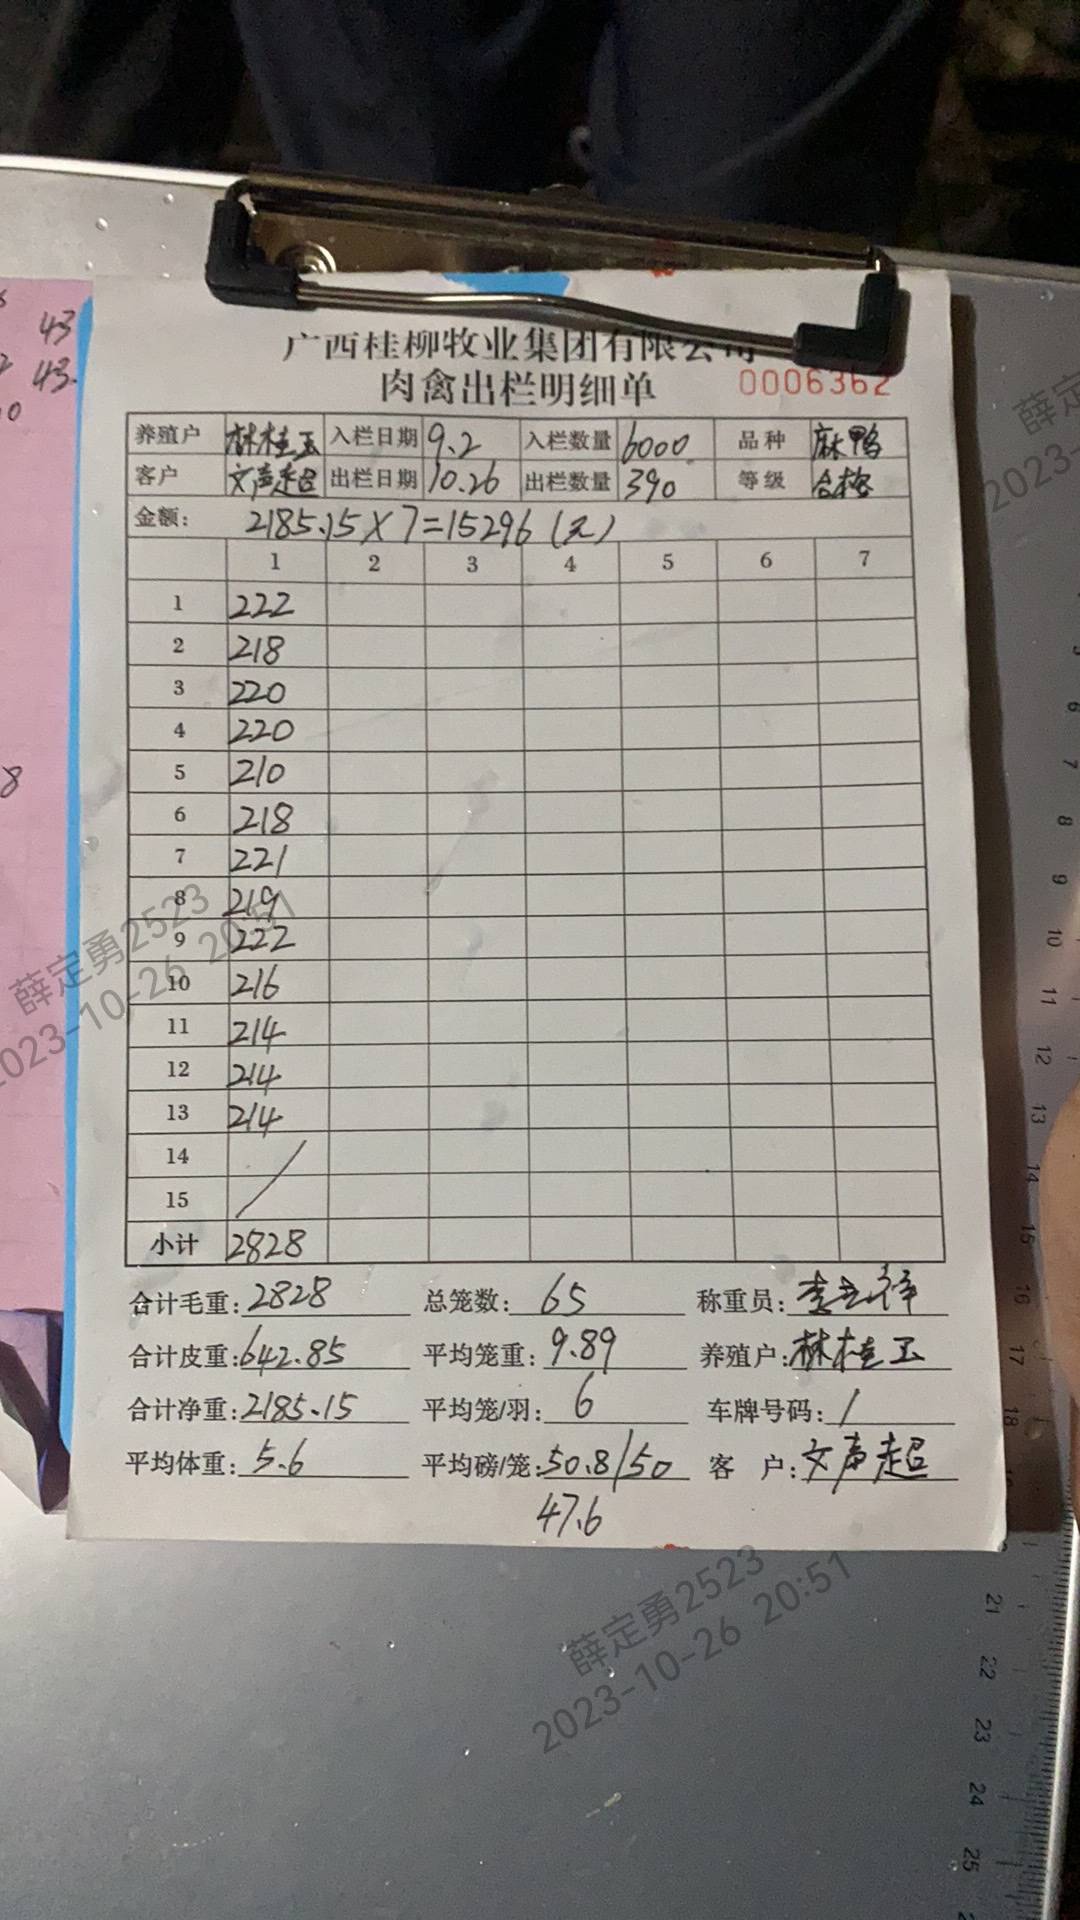 43
43.
8
广西桂柳牧业集团有限公司
肉禽出栏明细单 0006362
养殖户 林桂玉 入栏日期 9.2 入栏数量 6000 品种 麻鸭
客户 文声超 出栏日期 10.26 出栏数量 390 等级 合格
金额: 2185.15×7=15296(元)
1 2 3 4 5 6 7
1 222
2 218
3 220
4 220
5 210
6 218
7 221
8 219
9 222
10 216
11 214
12 214
13 214
14
15
小计 2828
合计毛重: 2828 总笼数: 65 称重员:
合计皮重: 642.85 平均笼重: 9.89 养殖户: 林桂玉
合计净重: 2185.15 平均笼/羽: 6 车牌号码: /
平均体重: 5.6 平均磅/笼: 50.8/50 客 户: 文声超
47.6
薛定勇2523
2023-10-26 20:51
薛定勇2523
2023-10-26 20:51
薛定
2023-
5
6
7
8
9
10
11
12
13
14
15
16
17
18
21
22
23
24
25